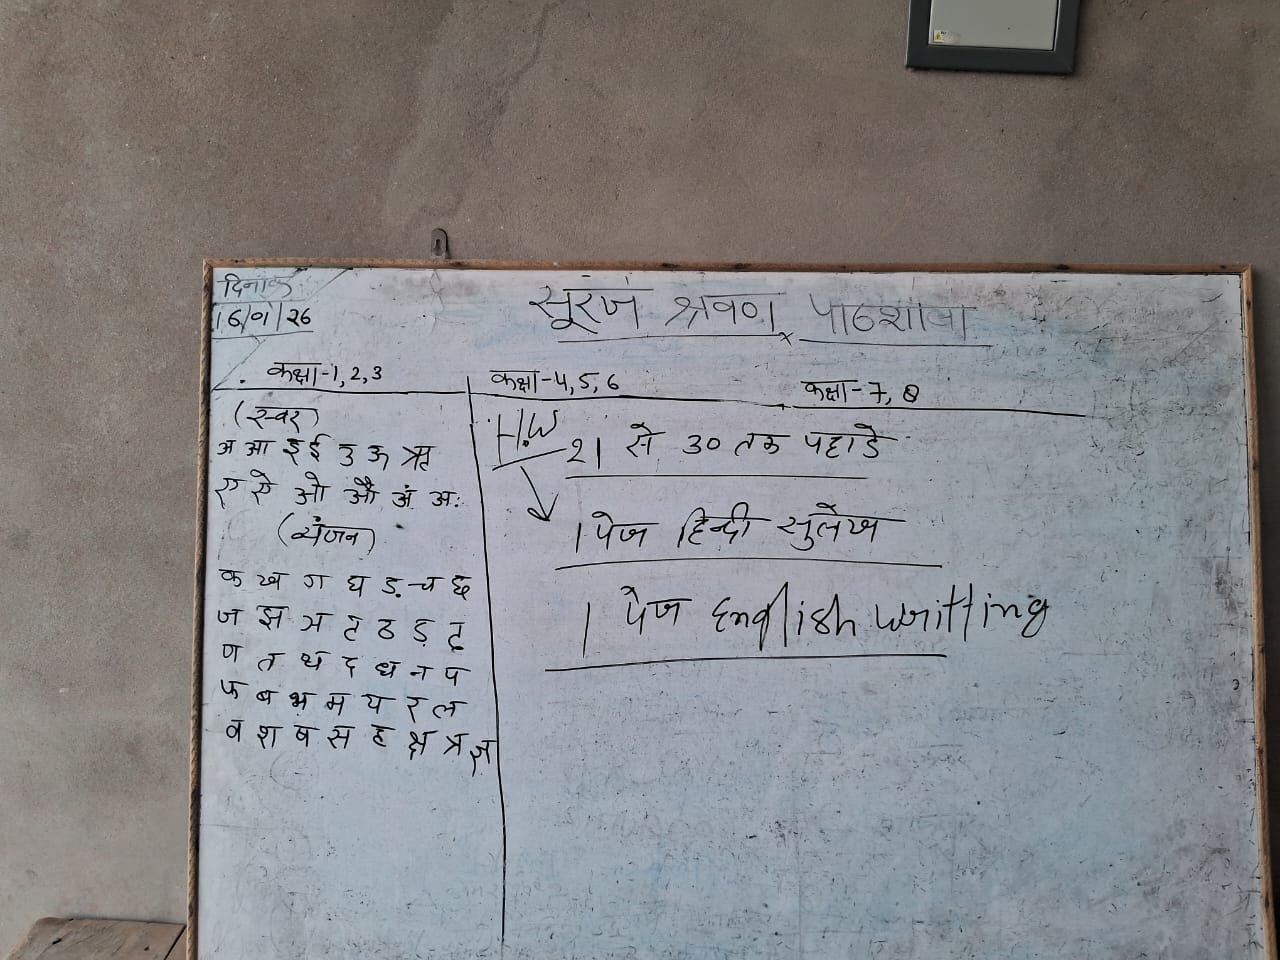 दिनांक
16/01/26
सूरज श्रवण पाठशाला
कक्षा-1,2,3
कक्षा-4,5,6
कक्षा-7,8
(स्वर)
अ आ इ ई उ ऊ ऋ
ए ऐ ओ औ अं अः
(व्यंजन)
क ख ग घ ङ च छ
ज झ ञ ट ठ ड ढ
ण त थ द ध न प
फ ब भ म य र ल
व श ष स ह क्ष त्र ज्ञ
H.W
21 से 30 तक पहाडे
1 पेज हिन्दी सुलेख
1 पेज English writting